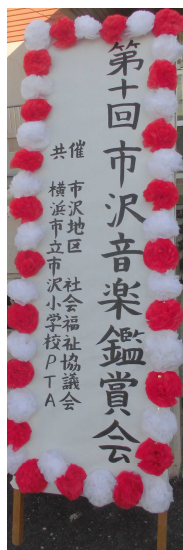 第十回 市沢音楽鑑賞会
共催 市沢地区 社会福祉協議会
横浜市立市沢小学校PTA